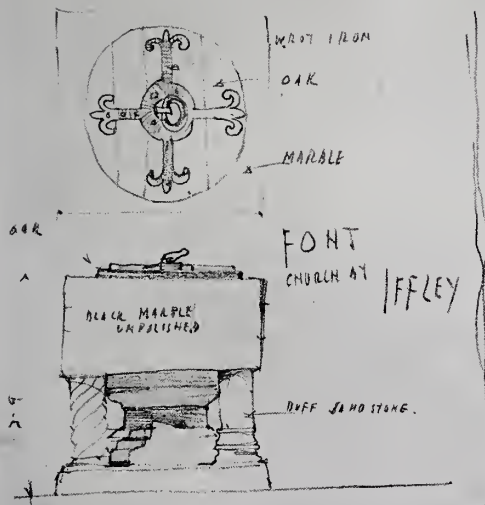 WROT IRON
OAK
MARBLE
OAK
FONT
CHURCH AT
IFFLEY
BLACK MARBLE
UNPOLISHED
BUFF SANDSTONE.